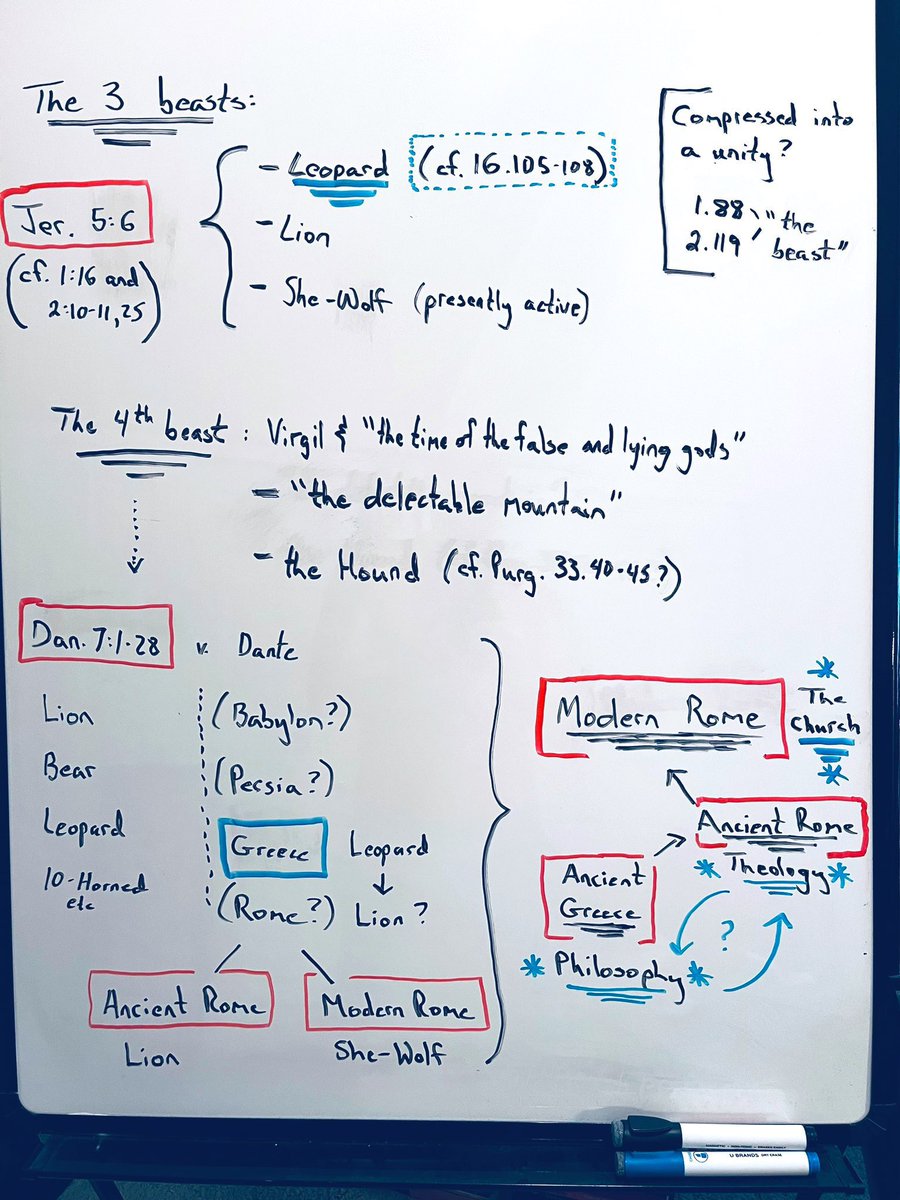 The 3 beasts:
Jer. 5:6
(cf. 1:16 and
2:10-11, 25)
- Leopard (cf. 16.105-108)
- Lion
- She-Wolf (presently active)
Compressed into
a unity?
1.88 "the
2.119 beast"
The 4th beast: Virgil & "the time of the false and lying gods"
- "the delectable mountain"
- the Hound (cf. Purg. 33.40-45?)
Dan. 7:1-28 v. Dante
Lion (Babylon?)
Bear (Persia?)
Leopard Greece Leopard
10-Horned
etc
(Rome?) Lion?
Ancient Rome Modern Rome
Lion She-Wolf
Modern Rome
The
Church
Ancient Rome
Theology
Ancient
Greece
Philosophy
?
U BRANDS DRY ERASE